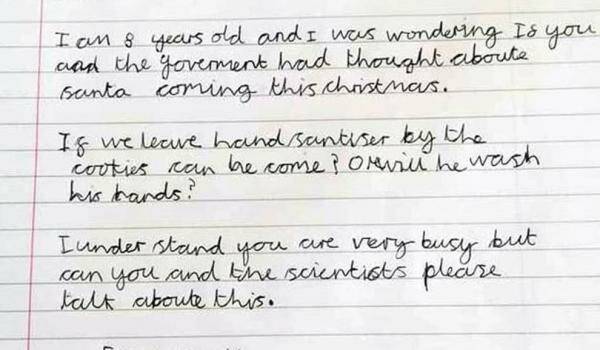 I am 8 years old and I was wondering If you
and the goverment had thought aboute
santa coming this christmas.
If we leave hand santiser by the
cookies can he come? Or will he wash
his hands?
I under stand you are very busy but
can you and the scientists please
talk aboute this.